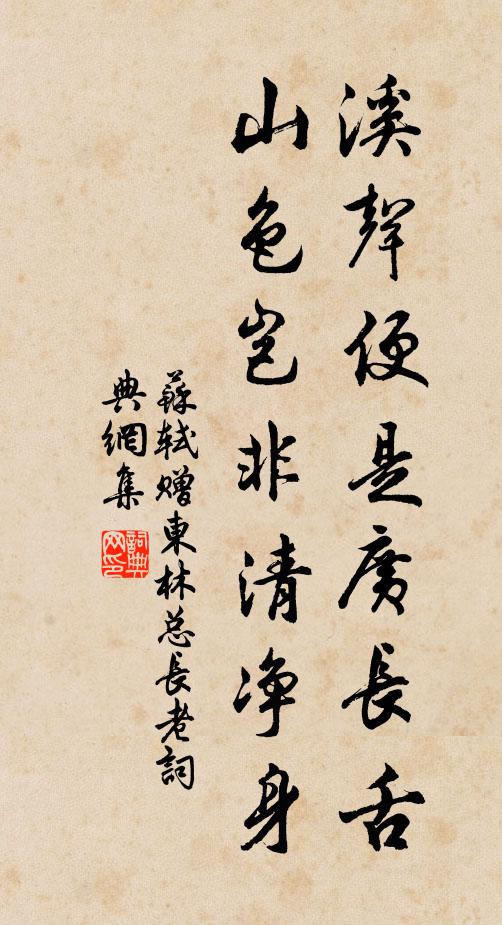 溪聲便是廣長舌
山色豈非清淨身
蘇軾贈東林总長老詞
典網集
詞典网印